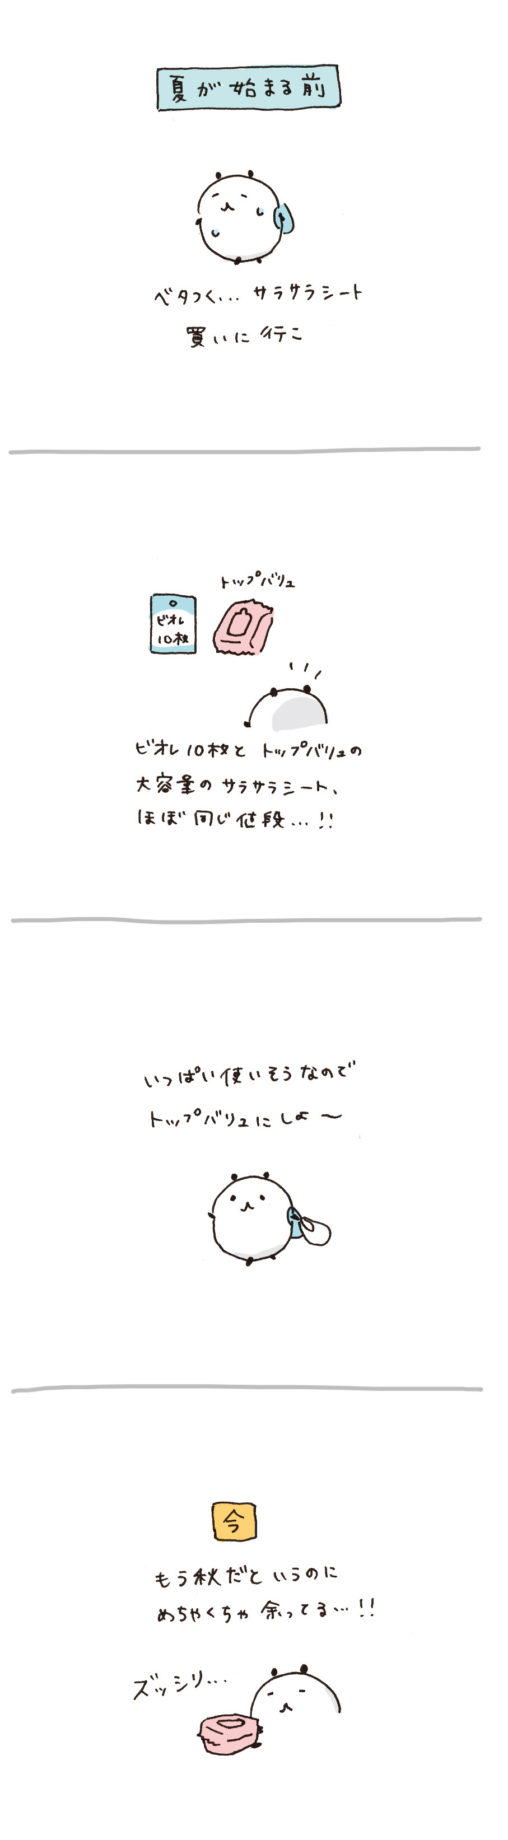 夏が始まる前
ベタつく... サラサラシート
買いに行こ
トップバリュ
ビオレ
10枚
ビオレ10枚と トップバリュの
大容量の サラサラシート、
ほぼ 同じ値段...!!
いっぱい使いそうなので
トップバリュにしよ〜
今
もう秋だというのに
めちゃくちゃ 余ってる...!!
ズッシリ...